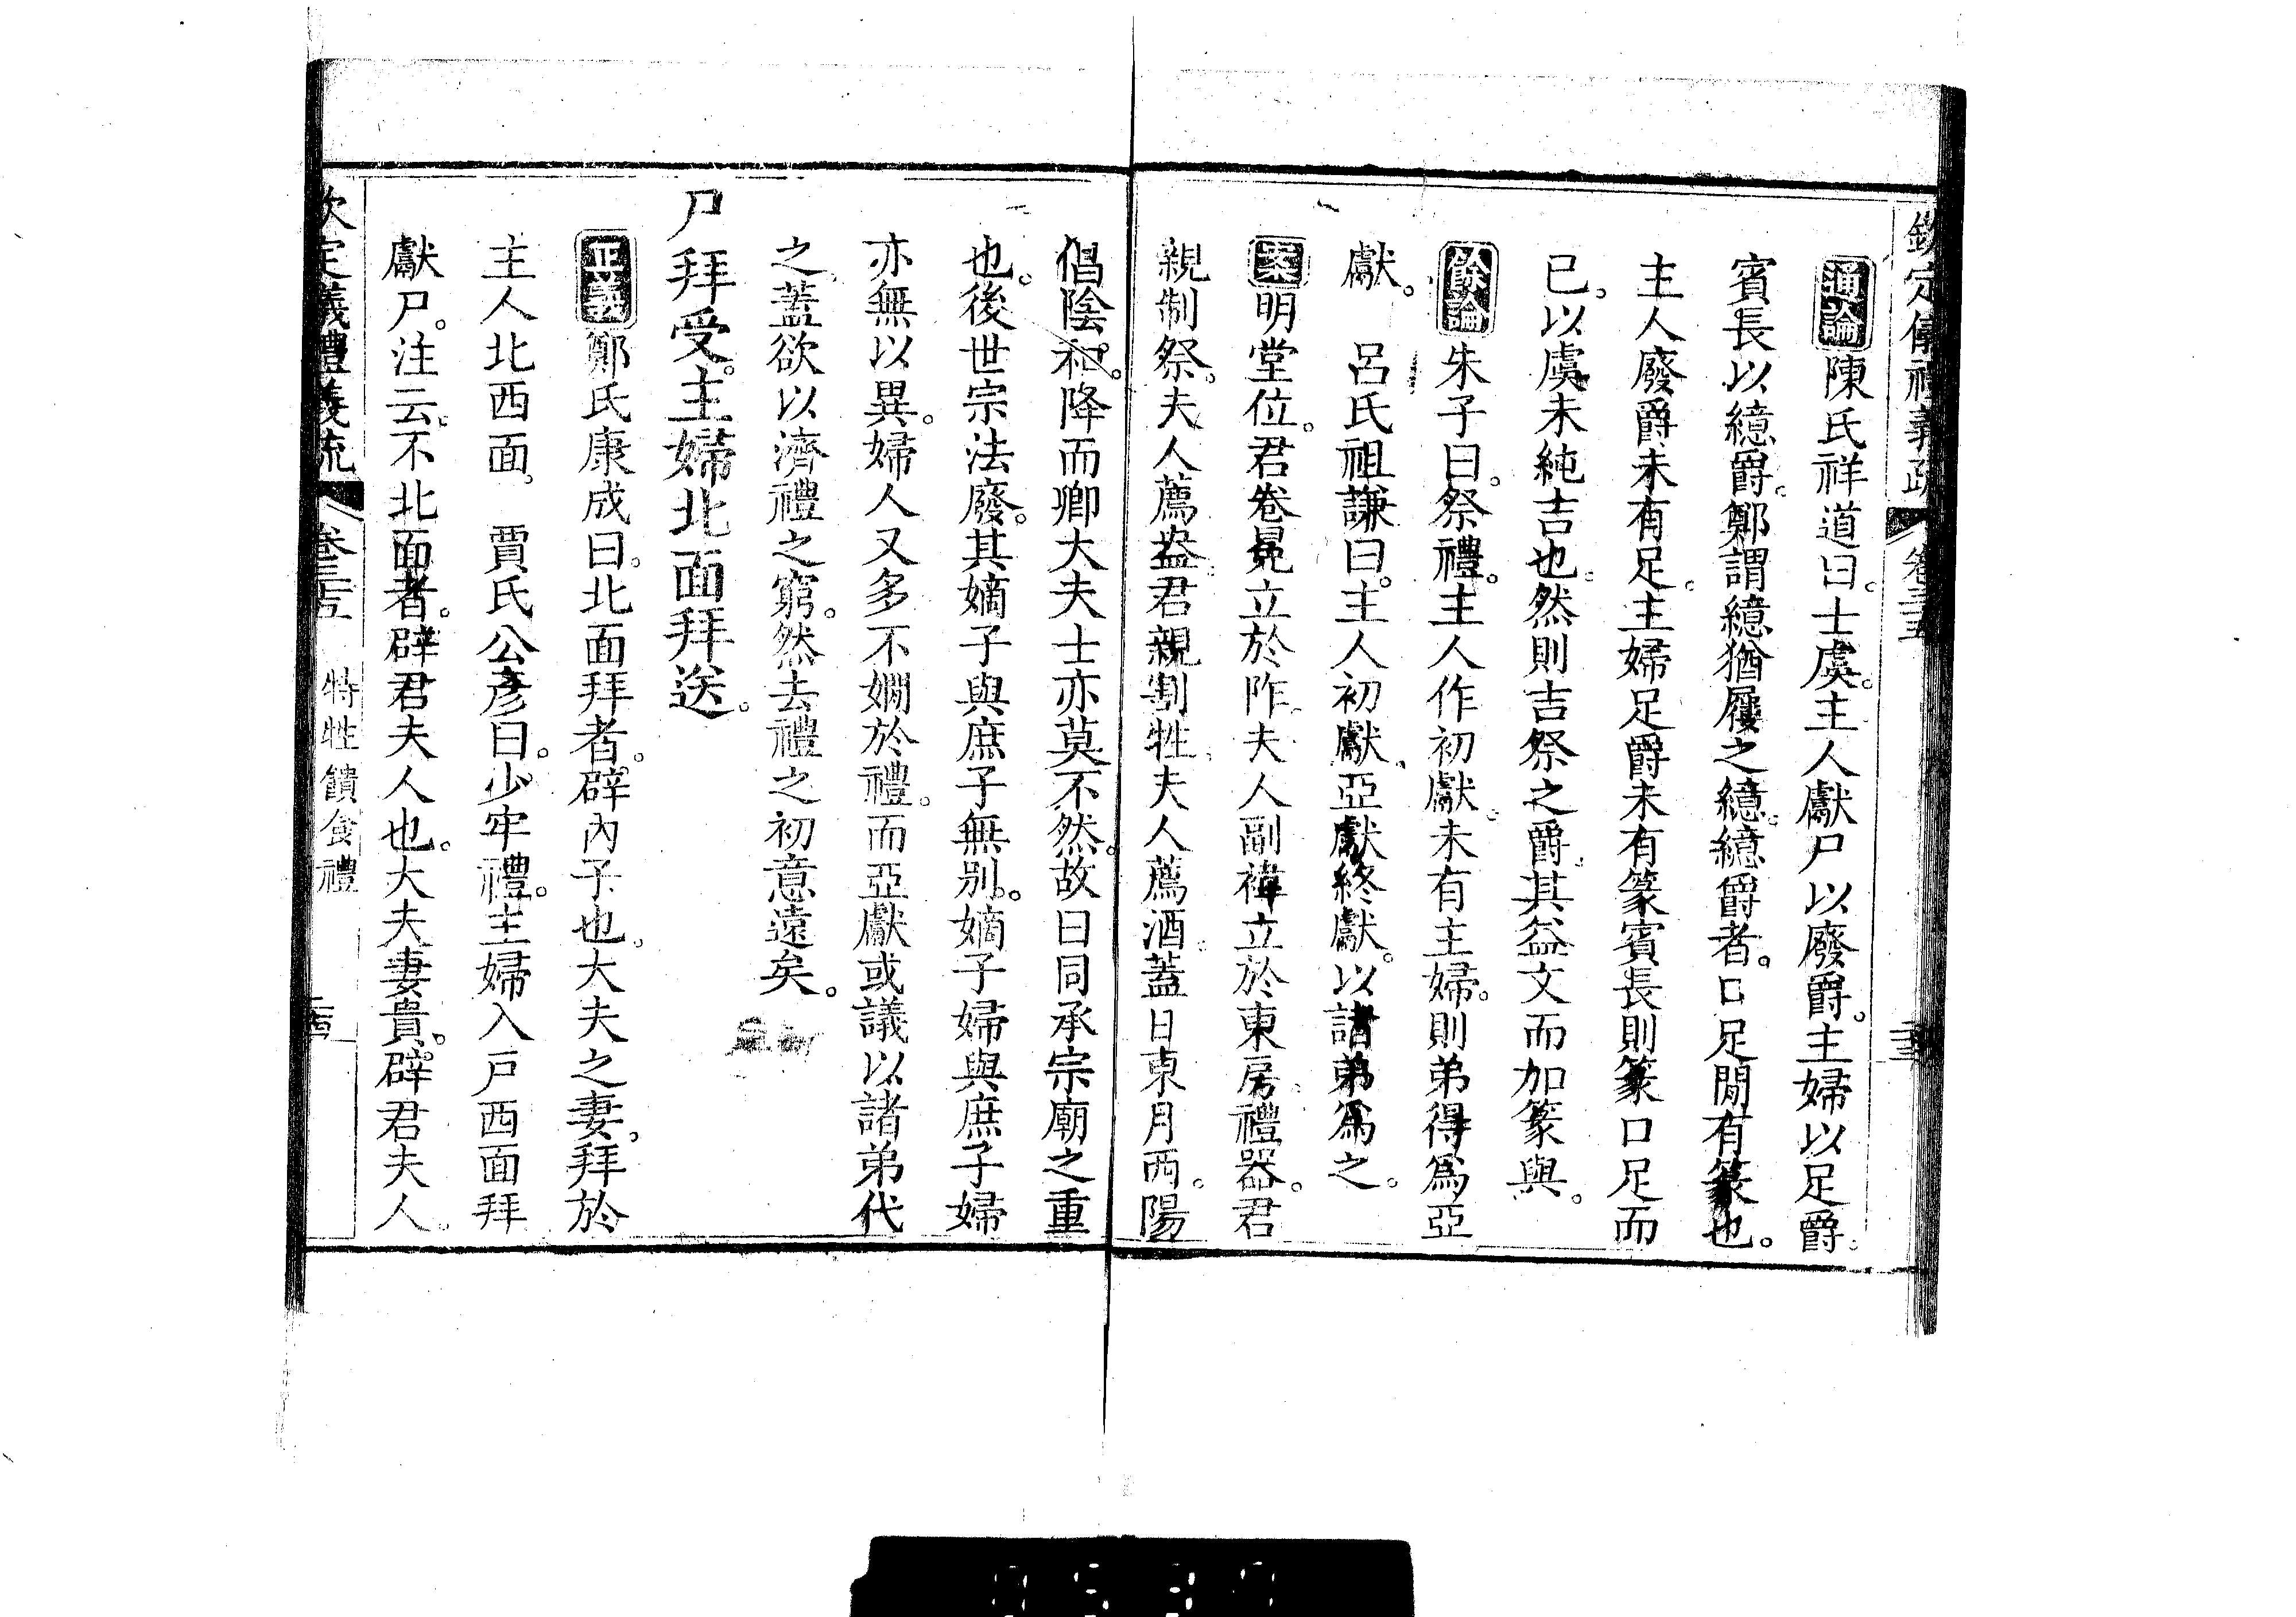 欽定儀禮義疏 卷三十五
通論陳氏祥道曰。士虞。主人獻尸以廢爵。主婦以足爵。
賓長以繶爵。鄭謂繶猶屨之繶。繶爵者。口足閒有篆也。
主人廢爵未有足。主婦足爵未有篆賓長則篆口足而
已。以虞未純吉也。然則吉祭之爵。其益文而加篆與。
餘論朱子曰。祭禮。主人作初獻。未有主婦。則弟得爲亞
獻。 呂氏祖謙曰。主人初獻。亞獻終獻。以諸弟爲之。
案明堂位。君卷冕立於阼。夫人副褘立於東房。禮器。君
親制祭。夫人薦盎。君親割牲。夫人薦酒。蓋日東月西。陽
倡陰和。降而卿大夫士亦莫不然。故曰同承宗廟之重
也。後世宗法廢。其嫡子與庶子無別。嫡子婦與庶子婦
亦無以異。婦人又多不嫺於禮。而亞獻或議以諸弟代
之。蓋欲以濟禮之窮。然去禮之初意遠矣。
尸拜受。主婦北面拜送。
正義鄭氏康成曰。北面拜者。辟內子也。大夫之妻。拜於
主人北西面。 賈氏公彥曰。少牢禮。主婦入戶西面拜
獻尸。注云。不北面者。辟君夫人也。大夫妻貴。辟君夫人。
欽定儀禮義疏 卷三十五 特牲饋食禮